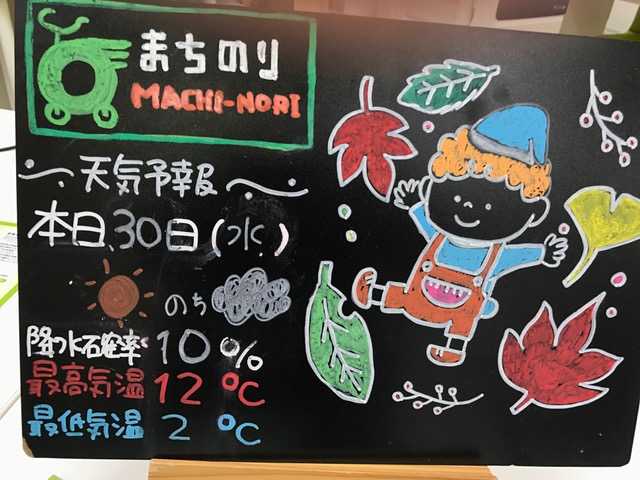 まちのり
MACHI-NORI
天気予報
本日、30日(水)
のち
降水確率 10%
最高気温 12℃
最低気温 2℃